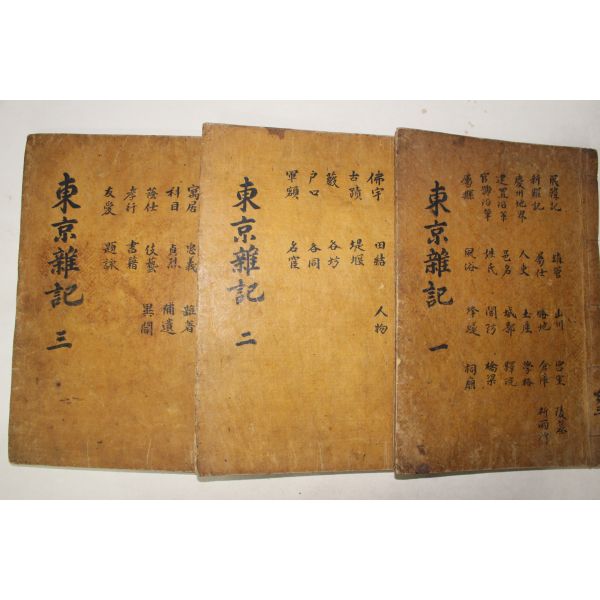 辰韓記 鎭管 山川 宮室 陵墓
新羅記 勝地 倉庫
慶州地界 人吏 土産 學校
建置沿革 邑名 城郭 驛院
官號沿革 姓氏 關防 橋梁
屬縣 風俗 烽燧 祠廟
東京雜記 一
佛宇 田結 人物
古蹟 堤堰
藪 各坊
戶口 各同
軍額 名宦
東京雜記 二
寓居 忠義 雜著
科目 貞烈 補遺
蔭仕 伎藝 異聞
孝行 書籍
友愛 題詠
東京雜記 三